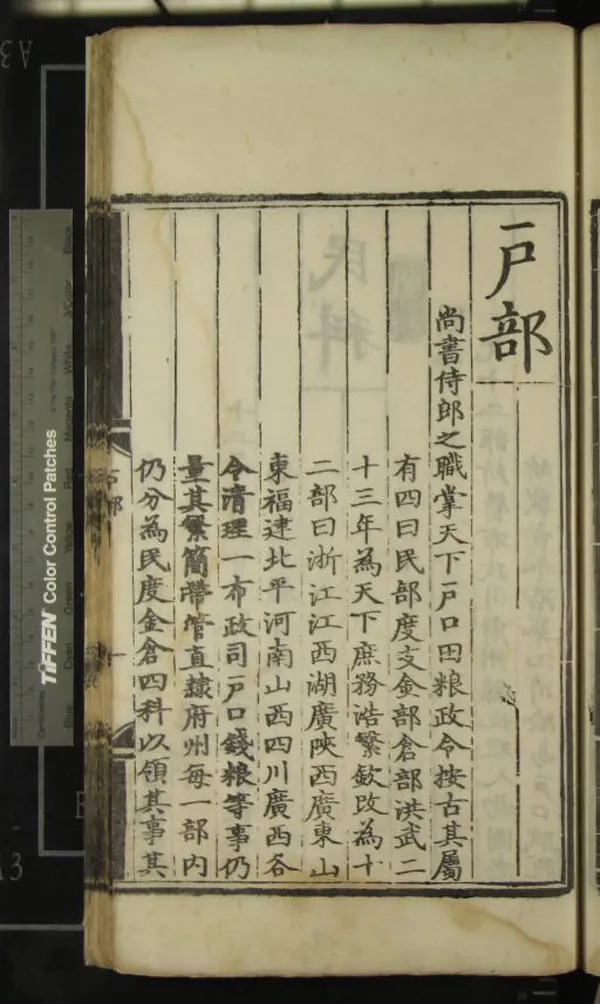 户部
尚書侍郎之職掌天下户口田粮政令按古其屬
有四曰民部度支金部倉部洪武二
十三年為天下庶務浩繁欽改為十
二部曰浙江江西湖廣陝西廣東山
東福建北平河南山西四川廣西各
令清理一布政司户口錢粮等事仍
量其繁簡帶管直隷府州每一部内
仍分為民度金倉四科以領其事其
户部
一
民科
TIFFEN Color Control Patches
Blue
Green
Yellow
Red
Magenta
White
3/Color
Black
A3